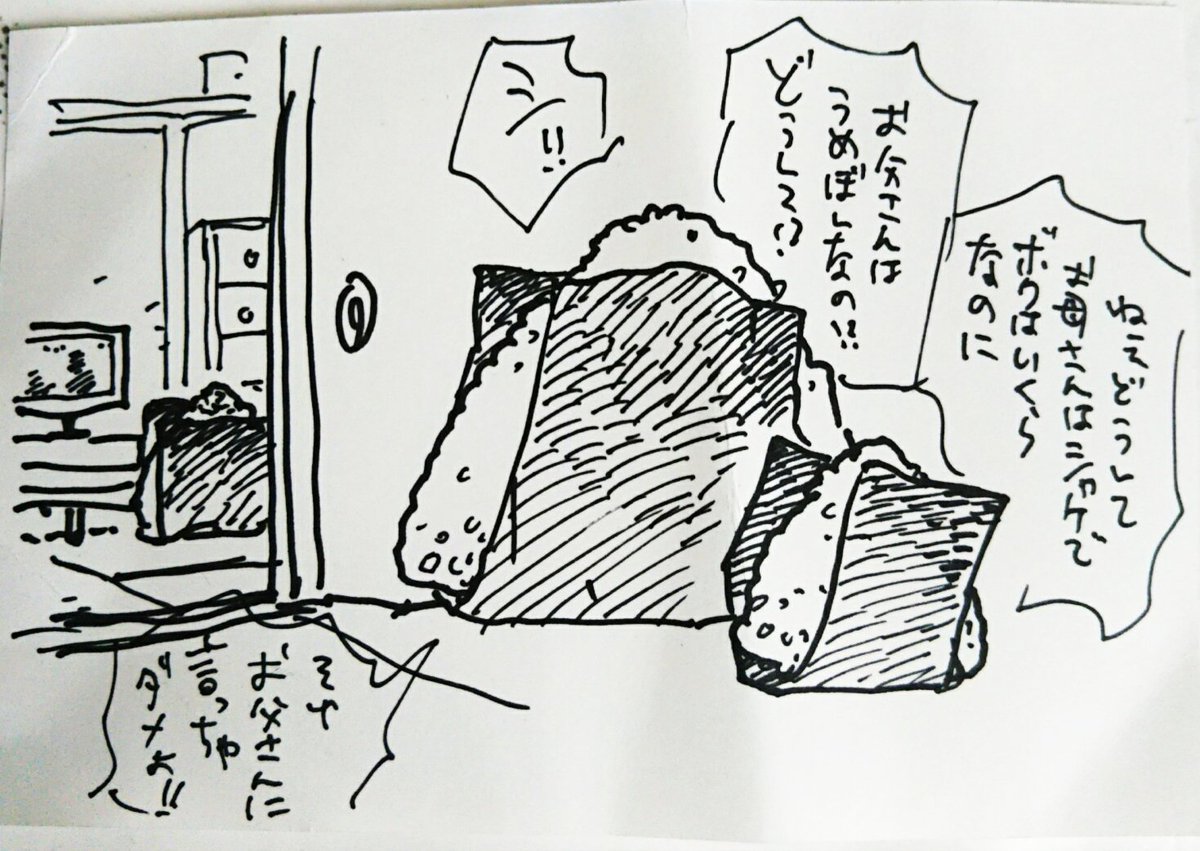 ねえどうして
お母さんはシャケで
ボクはいくら
なのに
お父さんは
うめぼしなの!?
どうして!?
シー!!
それ
お父さんに
言っちゃ
ダメよ!!